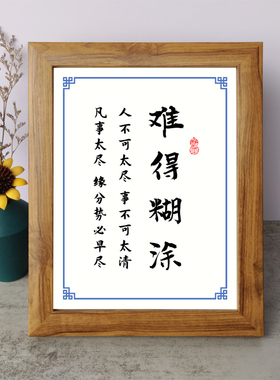 难得糊涂
人不可太尽 事不可太清
凡事太尽 缘分势必早尽